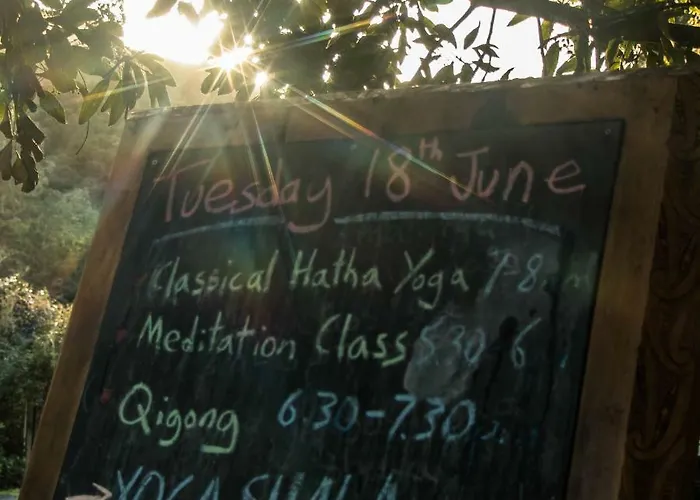 Tuesday 18th June
Classical Hatha Yoga 7-8
Meditation Class 5.30 6
Qigong 6.30-7.30
YOGA SHALA